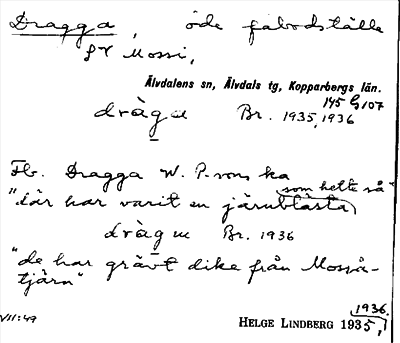 Dragga, öde fäbodställe
SV Mossi,
Älvdalens sn, Älvdals tg, Kopparbergs län.
145 G 107
dràga Br. 1935, 1936
Fb. Dragga W. P-sons ka
som hette så
"där har varit en järnblästa
dràgα Br. 1936
"de har grävt dike från Mosså-
tjärn"
VII:49
1936.
HELGE LINDBERG 1935,